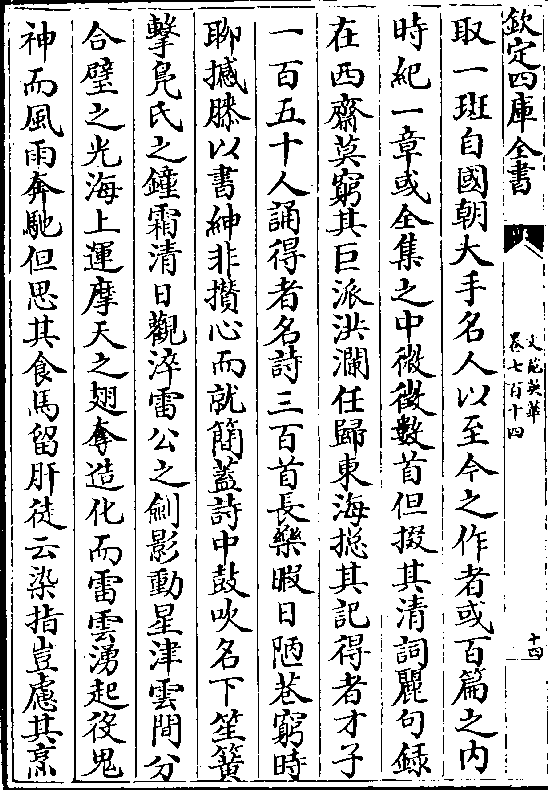 欽定四庫全書
文苑英華
卷七百十四
十四
取一班自國朝大手名人以至今之作者或百篇之内
時紀一章或全集之中微徵數首但掇其清詞麗句録
在西齋莫窮其巨派洪瀾任歸東海捴其記得者才子
一百五十人誦得者名詩三百首長樂暇日陋巷窮時
聊撼膝以書紳非攅心而就簡蓋詩中鼓吹名下笙簧
擊鳬氏之鐘霜清日觀淬雷公之劍影動星津雲間分
合璧之光海上運摩天之翅奪造化而雷雲湧起役鬼
神而風雨奔馳但思其食馬留肝徒云染指豈慮其烹